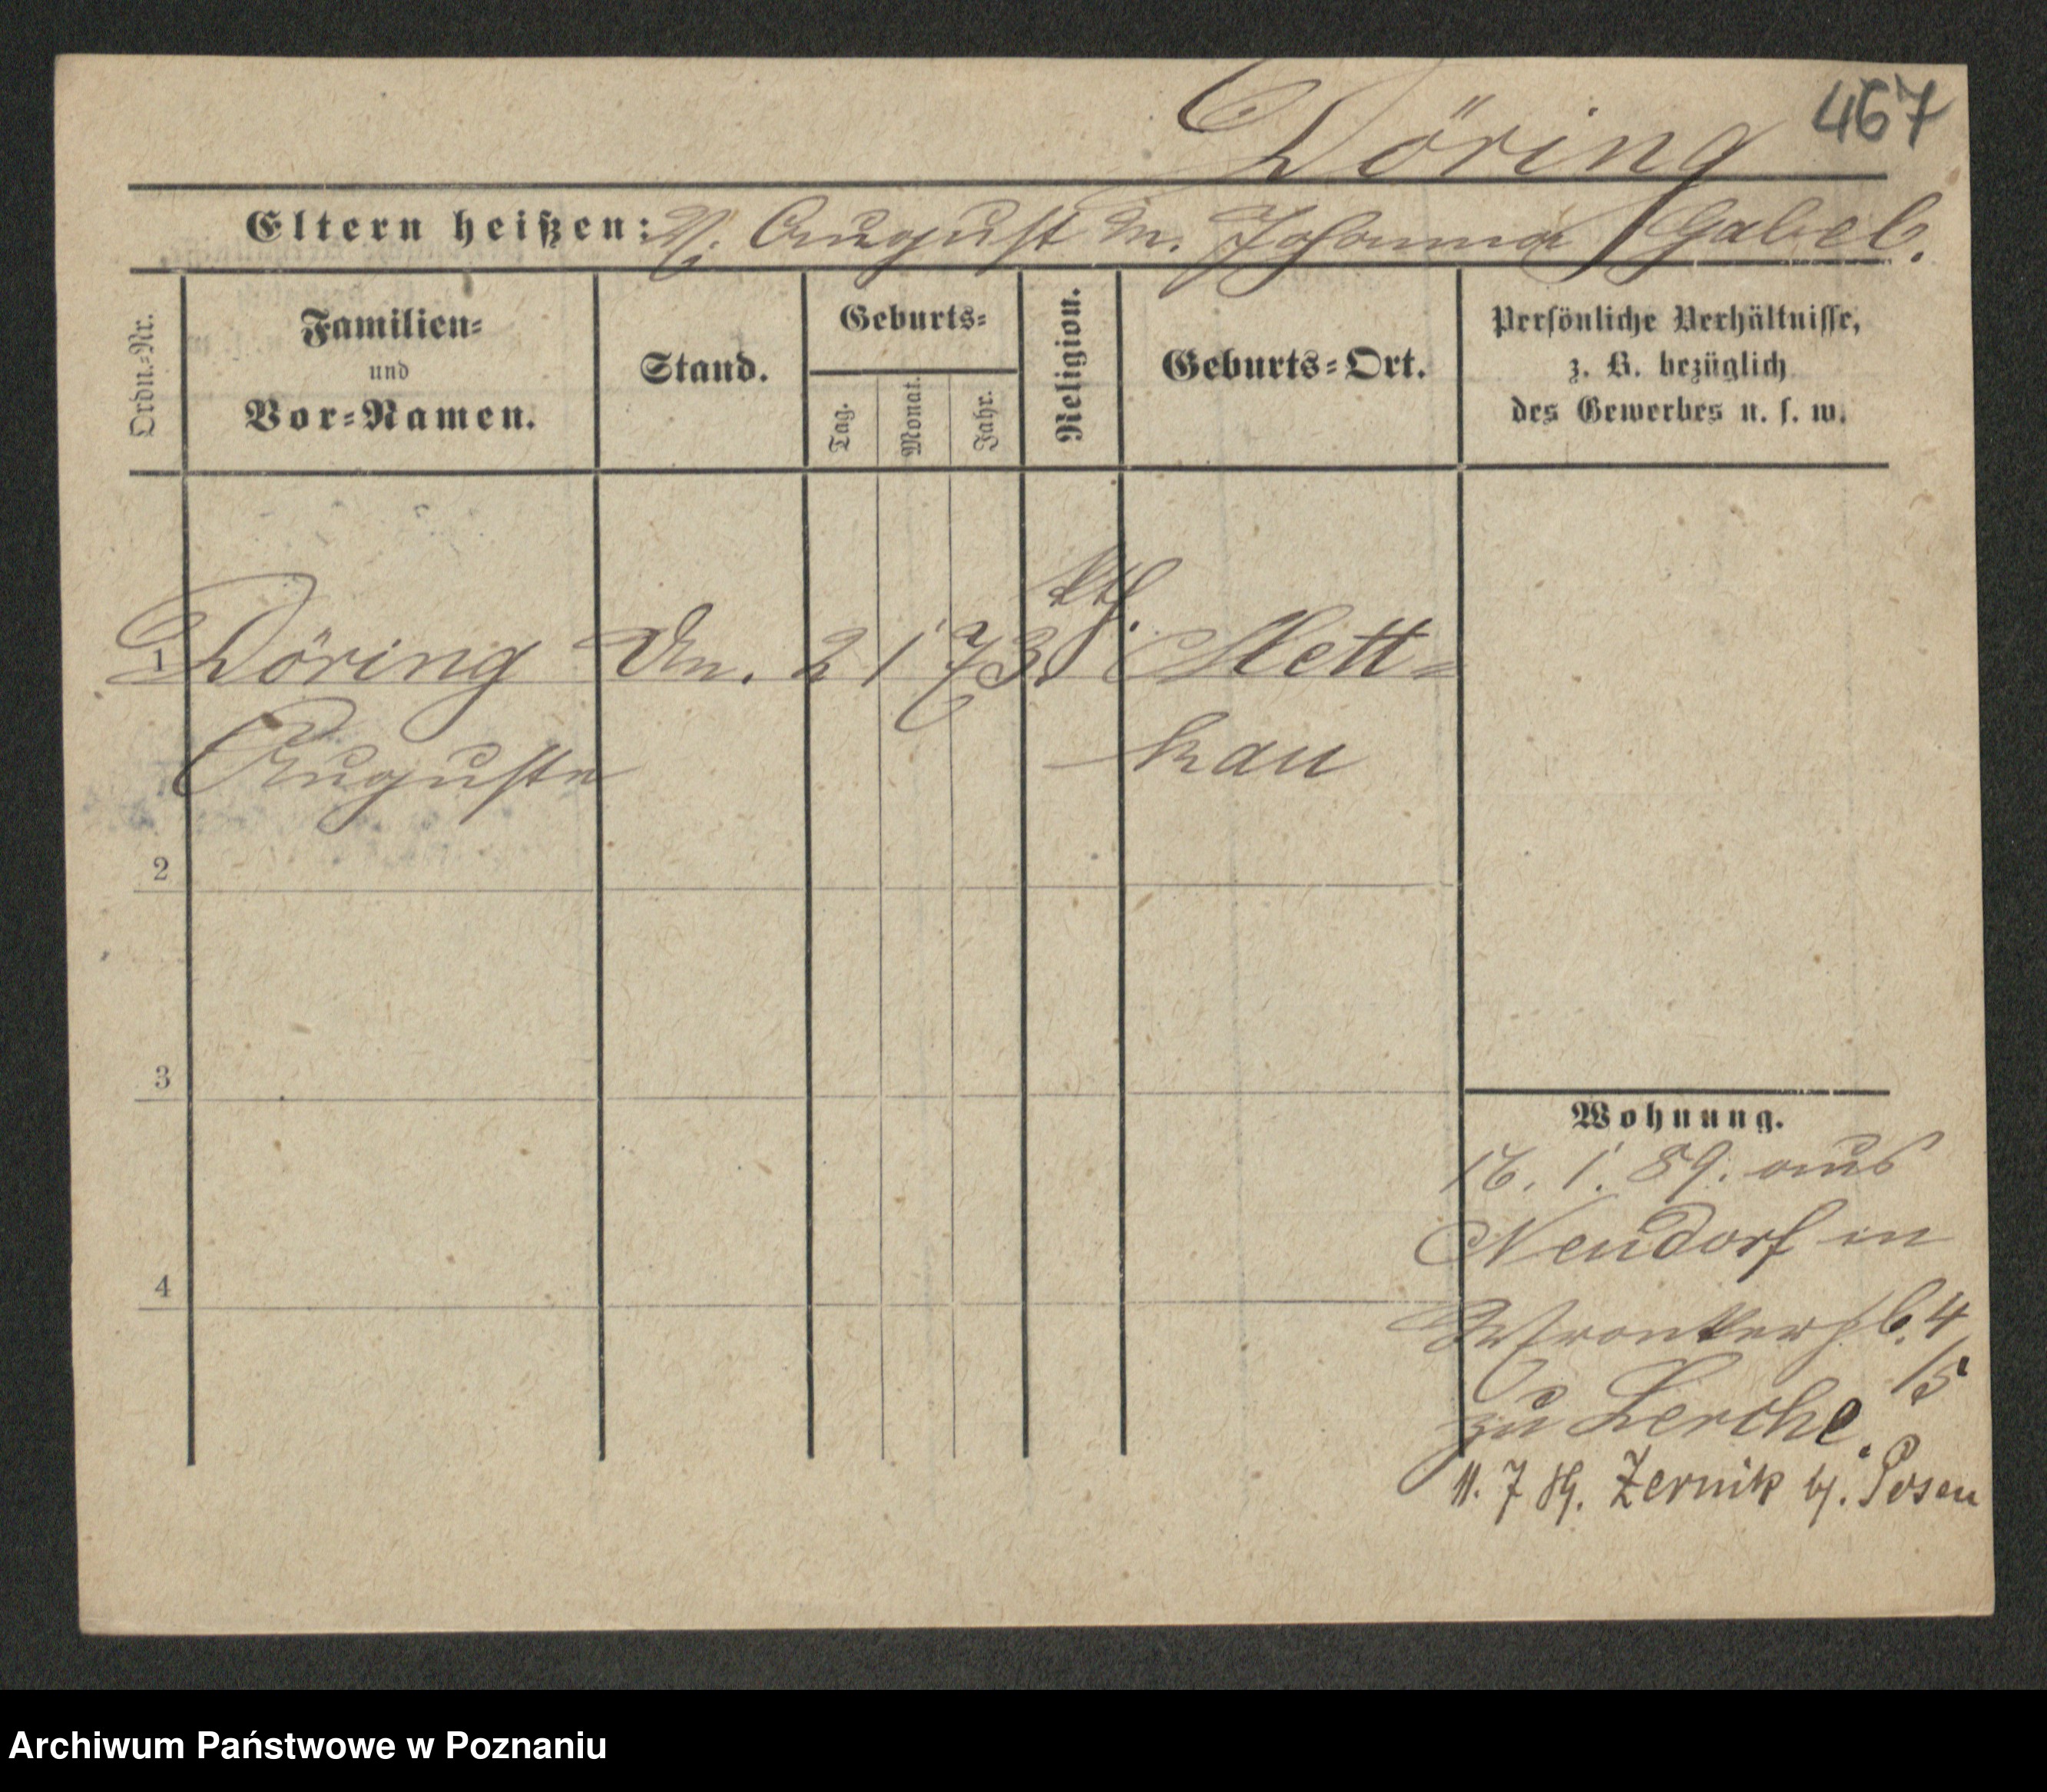 467
Döring
Eltern heißen: V. August M. Johanna Gabel.
Ordn.-Nr.
Familien-
und
Vor-Namen.
Stand.
Geburts-
Tag.
Monat.
Jahr.
Religion.
Geburts-Ort.
Persönliche Verhältnisse,
z. B. bezüglich
des Gewerbes u. s. w.
1 Döring 2 1 73. kth. Mett-
Auguste kau
2
3
4
Wohnung.
16. 1. 89. aus
Neudorf in
4
/5
zu Lerche.
11. 7 89. Zernik b/. Posen
Archiwum Państwowe w Poznaniu